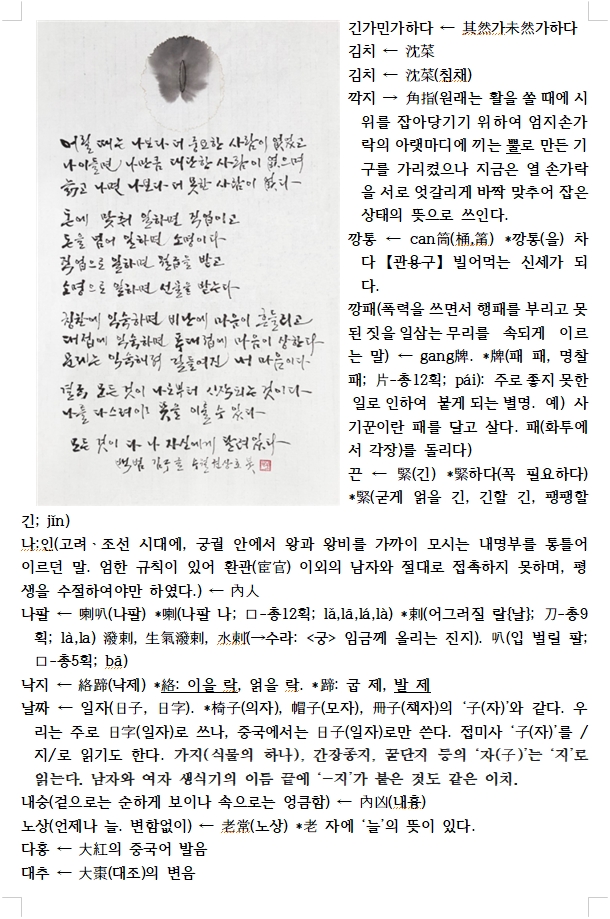 어릴 때는 나보다 더 중요한 사람이 없었고
나이들면 나만큼 대단한 사람이 없으며
늙고 나면 나보다 더 못한 사람이 없다
돈에 맞춰 일하면 직업이고
돈을 넘어 일하면 소명이다
직업으로 일하면 월급을 받고
소명으로 일하면 선물을 받는다
칭찬에 익숙하면 비난에 마음이 흔들리고
대접에 익숙하면 푸대접에 마음이 상한다
문제는 익숙해져 길들여진 내 마음이다
결국 모든 것이 나로부터 시작되는 것이다
나를 다스려야 뜻을 이룰 수 있다
모든 것이 다 나 자신에게 달려있다
백범 김구
긴가민가하다 ← 其然가未然가하다
김치 ← 沈菜
김치 ← 沈菜(침채)
깍지 → 角指(원래는 활을 쏠 때에 시
위를 잡아당기기 위하여 엄지손가
락의 아랫마디에 끼는 뿔로 만든 기
구를 가리켰으나 지금은 열 손가락
을 서로 엇갈리게 바짝 맞추어 잡은
상태의 뜻으로 쓰인다.
깡통 ← can筒(桶,筩) *깡통(을) 차
다【관용구】빌어먹는 신세가 되
다.
깡패(폭력을 쓰면서 행패를 부리고 못
된 짓을 일삼는 무리를 속되게 이르
는 말) ← gang牌. *牌(패 패, 명찰
패; 片-총12획; pái): 주로 좋지 못한
일로 인하여 붙게 되는 별명. 예) 사
기꾼이란 패를 달고 살다. 패(화투에
서 각장)를 돌리다)
끈 ← 緊(긴) *緊하다(꼭 필요하다)
*緊(굳게 얽을 긴, 긴할 긴, 팽팽할
긴; jǐn)
나:인(고려、조선 시대에, 궁궐 안에서 왕과 왕비를 가까이 모시는 내명부를 통틀어
이르던 말. 엄한 규칙이 있어 환관(宦官) 이외의 남자와 절대로 접촉하지 못하며, 평
생을 수절하여야만 하였다.) ← 內人
나팔 ← 喇叭(나팔) *喇(나팔 나; 口-총12획; lǎ,lā,lá,là) *剌(어그러질 랄{날}; 刀-총9
획; là,la) 潑剌, 生氣潑剌, 水剌(→수라: <궁> 임금께 올리는 진지). 叭(입 벌릴 팔;
口-총5획; bā)
낙지 ← 絡蹄(낙제) *絡: 이을 락, 얽을 락. *蹄: 굽 제, 발 제
날짜 ← 일자(日子, 日字). *椅子(의자), 帽子(모자), 冊子(책자)의 ‘子(자)’와 같다. 우
리는 주로 日字(일자)로 쓰나, 중국에서는 日子(일자)로만 쓴다. 접미사 ‘子(자)’를 /
지/로 읽기도 한다. 가지(식물의 하나), 간장종지, 꿀단지 등의 ‘자(子)’는 ‘지’로
읽는다. 남자와 여자 생식기의 이름 끝에 ‘-지’가 붙은 것도 같은 이치.
내숭(겉으로는 순하게 보이나 속으로는 엉큼함) ← 內凶(내흉)
노상(언제나 늘. 변함없이) ← 老常(노상) *老 자에 ‘늘’의 뜻이 있다.
다홍 ← 大紅의 중국어 발음
대추 ← 大棗(대조)의 변음